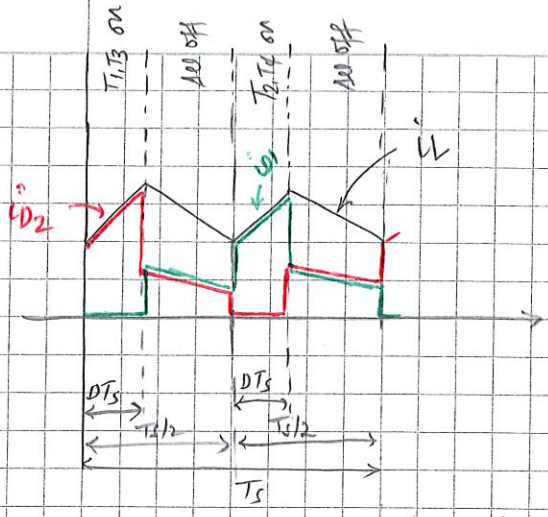 T1,T3 on
All off
T2,T4 on
All off
iD1
iL
iD2
DTs
DTs
Ts/2
Ts/2
Ts